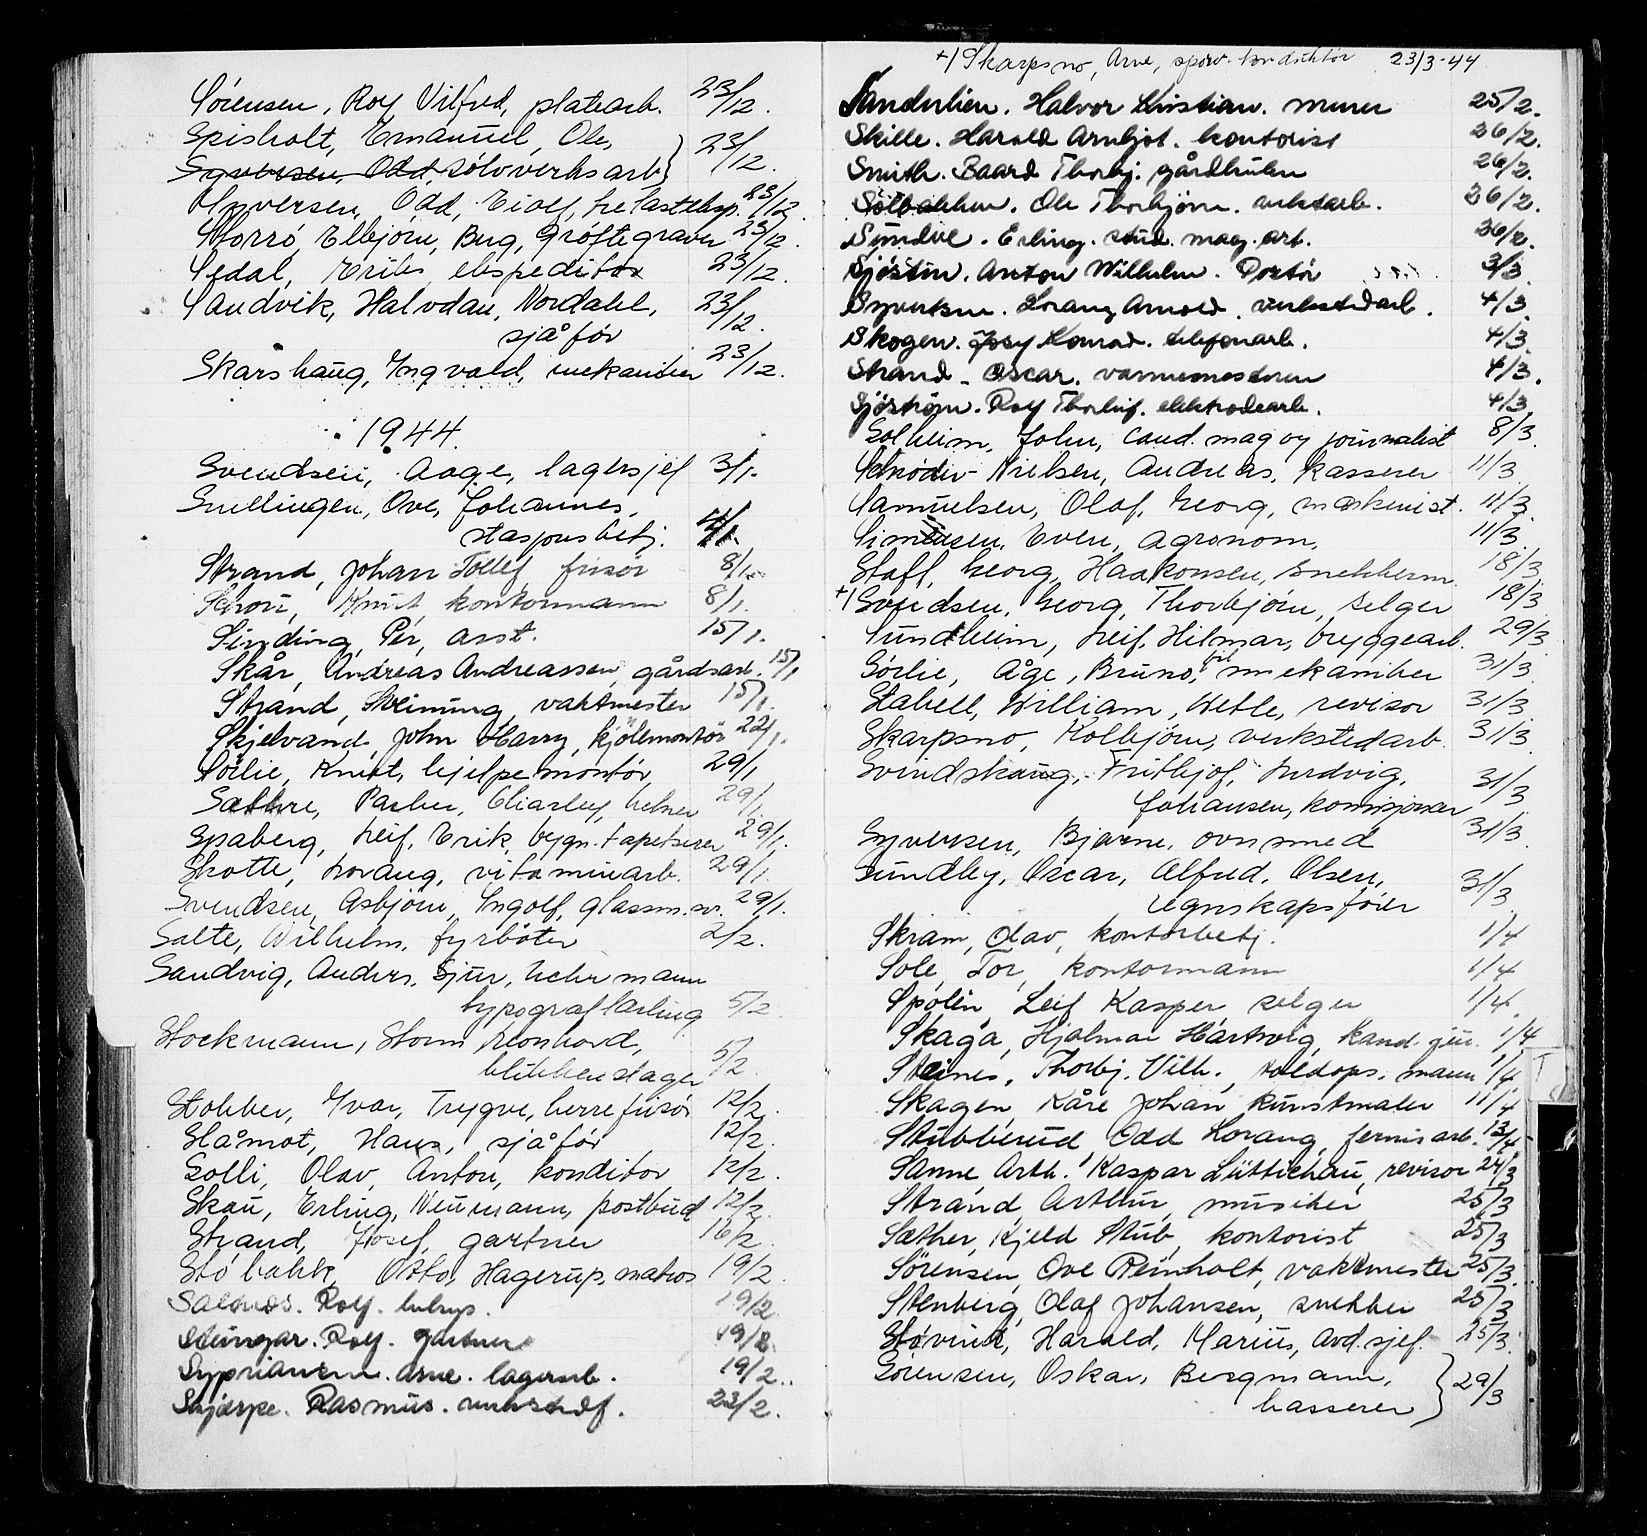 Sørensen, Roy Vilfred, platearb. 23/12.
Spisholt, Emanuel, Ole,
Syversen, Odd, sølvverksarb. } 23/12.
Odd, Eiolf, 23/12.
Storrø, Elbjørn, Bug, Grøftegraver 23/12.
Sedal, Erik, ekspeditør 23/12.
Sandvik, Halvdan, Nordahl, 23/12.
sjåfør
Skarshaug, Yngvald, mekaniker 23/12.
1944.
Svendsen, Aage, lagersjef 3/1.
Snellingen, Ove, Johannes,
stasjonsbetj. 4/1.
Strand, Johan Tollef, frisør 8/1.
Schou, Knut, kontormann 8/1.
Sinding, Per, asst. 15/1.
Skår, Andreas Andreassen, gårdsarb. 15/1
Strand, Steinung, vaktmester 15/1.
Skjelvand, John Harry, kjølemontør 22/1.
Sørlie, Knut, hjelpemontør, 29/1
Sæthre, Parker, Charley, 29/1.
Spaberg, Leif, Erik, bygn. tapetserer 29/1.
Skotte, Lorang, vitaminarb. 29/1.
Svendsen, Asbjørn, Ingolf, glassm.sv. 29/1.
Salte, Wilhelm, fyrbøter 2/2.
Sandvig, Anders, Sjur, Lehrmann
typograflærling 5/2.
Stockmann, Storm Leonhard, 5/2.
blikkenslager
Stokker, Ivar, Trygve, herrefrisør 12/2.
Slåmot, Hans, sjåfør 12/2.
Solli, Olav, Anton, konditor 12/2.
Skau, Erling, Neumann, postbud 12/2.
Strand, Josef, gartner 16/2.
Stobakk, Otto, Hagerup, matros 19/2.
Rolf. 19/2.
Steingar. Rolf. Gartner 19/2.
Syprianen. Arne. lagerarb. 19/2..
Skjerpe. Rasmus. 23/2.
+) Skarpsno, Arne, sporv. konduktør 23/3-44
Sanderlien. Halvor Kristian. murer 25/2.
Skille. Harald Arnljot. kontorist 26/2.
Smith. Baard Thorbj. gårdbruker 26/2.
Sølbakken. Ole Thorbjørn. verkstedarb. 26/2.
Sundve. Erling. stud. mag. art. 26/2.
Sjøstin. Anton Wilhelm. Portør 3/3.
Syvertsen. Lorang Arnold. verkstedarb. 4/3.
Skogen. Josy Konrad. telefonarb. 4/3.
Strand - Oscar. varmemesteren 4/3.
Sjøstrøm. Rolf Thorleif. elektrodearb. 4/3.
Solheim, John, cand. mag og journalist 8/3.
Schrøder-Nielsen, Andreas, kasserer 11/3
Samuelsen, Olaf, Georg, maskinist. 11/3.
Simensen, Even, agronom. 11/3.
Staff, Georg, Haakonsen, snekkerm. 18/3
+) Svendsen, Georg, Thorbjørn, selger 18/3
Sundheim, Leif, Hilmar, bryggearb. 29/3
Sørlie, Åge, Bruno, mekaniker 31/3.
Stabell, William, Wetle, revisor 31/3
Skarpsno, Kolbjørn, verkstedarb. 31/3
Svindskaug, Frithjof, Ludvig, 31/3
Johansen, komisjonær
Syversen, Bjarne, ovnsmed 31/3.
Sundby, Oscar, Alfred, Olsen, 31/3
regnskapsfører
Skram, Olav, kontorbetj. 1/4
Sole, Tor, kontormann 1/4
Spolén, Leif Kasper selger 1/4.
Skaga, Hjalmar Hartvig, kand. jur. 1/4
Steines, Thorbj. Vilh., toldops. mann 1/4
Skagen, Kåre Johan kunstmaler 11/4
Stubberud Odd Lorang, fernisarb. 13/4
Sanne Arth. Kaspar Lüttichau, revisor 24/3
Strand, Arthur, musiker 25/3
Sæther, Kjeld Stub, kontorist 25/3
Sørensen, Ove Reinholt, vaktmester 25/3.
Stenberg, Olaf Johansen, snekker 25/3
Støvind, Harald, Marius, avd. sjef. 25/3.
Sørensen, Oskar, Bergmann,
kasserer } 29/3